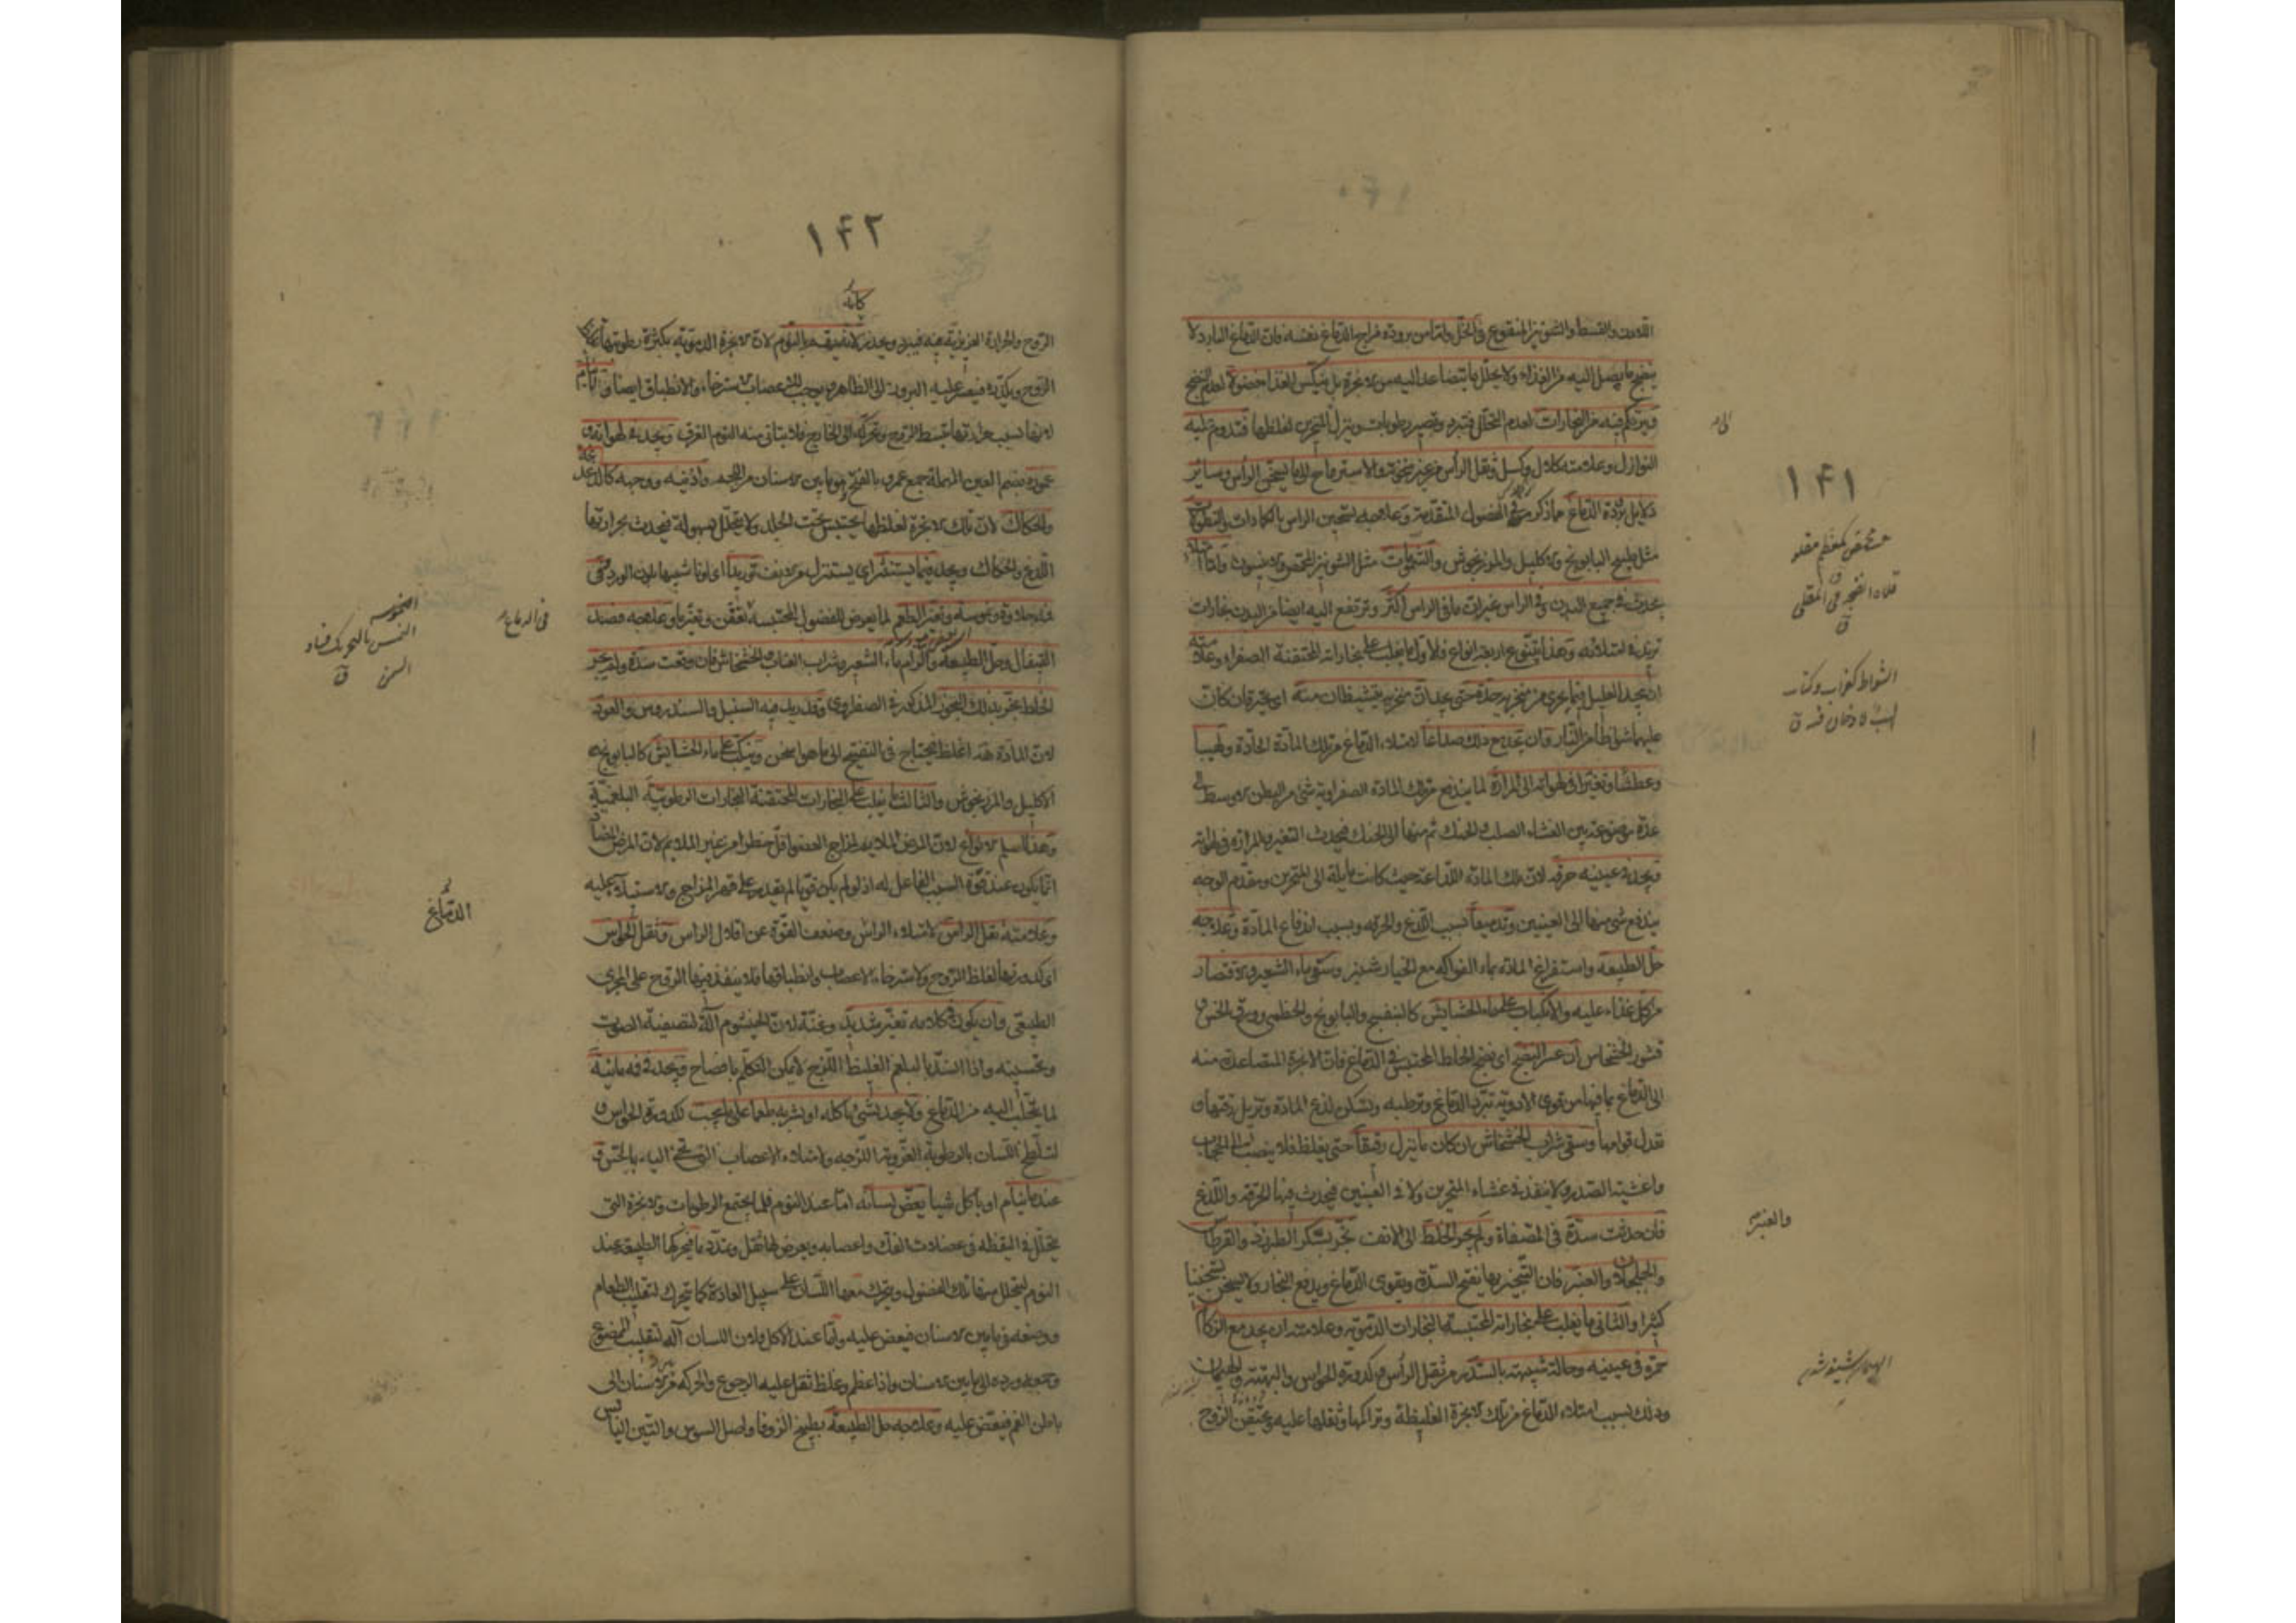 ١٤١
اللادن والقسط والشونيز المنقوع في الخل واما من برودة مزاج الدماغ نفسه فان الدماغ البارد لا
ينضج ما يصل اليه من الغذاء ولا يحلل ما يتصاعد اليه من الابخرة بل ينعكس الغذاء لعدم النضج
ويتراكم فيه من البخارات لعدم التحلل فتبرد وتصير رطوبات وينزل الى المنخرين لغلظها فتدوم عليه
النوازل وعلامته كلال وكسل وثقل الرأس من غير نخوته والاسترواح الى ما يسخن الرأس وسائر
دلايل برودة الدماغ مما ذكر في الفصول المتقدمة وعلاجه تسخين الراس بالكمادات والنطولات
مثل طبيخ البابونج والاكليل والمرزنجوش والشمومات مثل الشونيز المحمص والانيسون واما
يحدث في جميع البدن وفي الراس غير ان ما في الراس اكثر وترتفع اليه ايضا من البدن بخارات
تزيد في امتلائه وهذا يتنوع اربعة انواع فالاول ما يغلب على بخاراته المحتقنة الصفراء وعلامته
ان يجد العليل فيما يجرى من منخريه حدة حتى يجد ان منخريه يتشيطان منه اى يحترقان كان
عليهما شواظا من النار وان يجد مع ذلك صداعا لامتلاء الدماغ من تلك المادة الحادة ولهيبا
وعطشا وتغيرا في لهواته الى المرارة لما يندفع من تلك المادة الصفراوية شئ من البطن الاوسط الى
غدة موضوعة بين الغشاء الصلب والحنك ثم منها الى الحنك فيحدث التغير والمرارة في لهواته
ويجد في عينيه حرقة لان تلك المادة اللذاعة حيث كانت مايلة الى المنخرين ومقدم الوجه
يندفع شئ منها الى العينين وتدميعا بسبب اللذع والحرقة وبسبب اندفاع المادة وعلاجه
حل الطبيعة واستفراغ المادة بماء الفواكه مع الخيارشنبر وسقى ماء الشعير والاقتصار
من كل غذاء عليه والانكباب على ماء الحشايش كالبنفسج والبابونج والخطمى وورق الخس و
قشور الخشخاش ان عسر النضج اى نضج الخلط المحتبس في الدماغ فان الابخرة المتصاعدة منه
الى الدماغ بما فيها من قوى الادوية تبرد الدماغ وترطبه وتسكن لذع المادة وتزيل رقتها و
تعدل قوامها وسقى شراب الخشخاش ان كان ما ينزل رقيقا حتى يغلظ فلا ينصب الى الحجاب
واغشية الصدر ولا ينفذ في غشاء المنخرين ولا في العينين فيحدث فيها الحرقة واللذع
فان حدثت سدة في المصفاة ولم يجر الخلط الى الانف بخر بسكر الطبرزد والقرطاس
والجلجلان والعنبر فان التبخير بها يفتح السدة ويقوى الدماغ ويدفع البخار ولا يسخن تسخينا
كثيرا والثاني ما يغلب على بخاراته المحتبسة البخارات الدموية وعلامته ان يجد مع الزكام
حمرة في عينيه وحالة شبيهة بالسدر من ثقل الرأس وكدورة الحواس والهيمان
وذلك بسبب امتلاء الدماغ من تلك الابخرة الغليظة وتراكمها وثقلها عليه ويحتقن الروح
والعنبر
١٤٢
الروح والحرارة الغريزية فيه فيبرد ويخدر لا يفيقه بالنوم لان الابخرة الدموية بكثرة رطوبتها
الروح ويكدره فيعسر عليه البروز الى الظاهر ويوجب للاعصاب استرخاء والانطباق ايضا
لانها بسبب حرارتها تبسط الروح وتحركه الى الخارج فلا يتاتى منه النوم الغرق ويجد في لهواته و
عموره بضم العين المهملة جمع عمر بالفتح وهو ما بين الاسنان من اللحم واذنيه ووجهه كاللذع
والحكاك لان تلك الابخرة لغلظها تحتبس تحت الجلد ولا تتحلل بسهولة فيحدث بحرارتها
اللذع والحكاك ويجد فيما يستنثر اى يستنزل من الانف توريدا اى لونا شبيها بلون الورد وفى
فمه حلاوة ونموسة وتغير الطعم لما يعرض للفضول المحتبسة تعفن وتغير ما وعلاجه فصد
القيفال وحل الطبيعة والزام ماء الشعير وشراب العناب والخشخاش فان وقعت سدة ولم يجر
الخلط بخر بذلك البخور المذكور في الصفراوى وقد يزيد فيه السنبل والسندروس والعود
لان المادة هذه اغلظ فيحتاج في التفتيح الى ما هو اسخن وينكب على ماء الحشايش كالبابونج و
الاكليل والمرزنجوش والثالث ما يغلب على البخارات المحتقنة البخارات الرطوبية البلغمية
وهذا اسلم الانواع لان المرض الملايم لمزاج العضو اقل خطرا من غير الملايم لان المرض
انما يكون عند قوة السبب الفاعل له اذ لو لم يكن قويا لم يقدر على قهر المزاج والاستيلاء عليه
وعلامته ثقل الراس لامتلاء الراس وضعف القوة عن اقلال الراس وثقل الحواس
اى كدورتها لغلظ الروح ولاسترخاء الاعصاب وانطباقها فلا ينفذ فيها الروح على المجرى
الطبيعى وان يكون في كلامه تغير شديد وغنة لان الخيشوم آلة لتصفية الصوت
وتحسينه واذا انسد بالبلغم الغليظ اللزج لا يمكن التكلم بافصاح ويجد في فمه مائية
لما يتحلب اليه من الدماغ ولا يجد بشئ ياكله او يشربه طعما على ما يجب لكدورة الحواس و
لتلطخ اللسان بالرطوبة الغروية اللزجة وامتلاء الاعصاب التى تجئ اليه بالحس و
عند ما ينام او ياكل شيئا يعض لسانه اما عند النوم فلما يجتمع الرطوبات والابخرة التى
يتحلل في اليقظة في عضلات الفك واعصابه ويعرض لها ثقل وتمدد ما فيحركها الطبيعة عند
النوم ليتحلل عنها تلك الفضول ويتحرك معها اللسان على سبيل العادة كما يتحرك لتقليب الطعام
ووضعه في ما بين الاسنان فيعض عليه واما عند الاكل فلان اللسان آلة لتقليب الممضوغ
وجمعه ورده الى ما بين الاسنان واذا عظم وغلظ ثقل عليه الرجوع والحركة من الاسنان الى
باطن الفم فيعض عليه وعلاجه حل الطبيعة بطبيخ الزوفا واصل السوس والتين اليابس
في الدماغ
النمس بالتحريك فساد
السمن ق
الدماغ